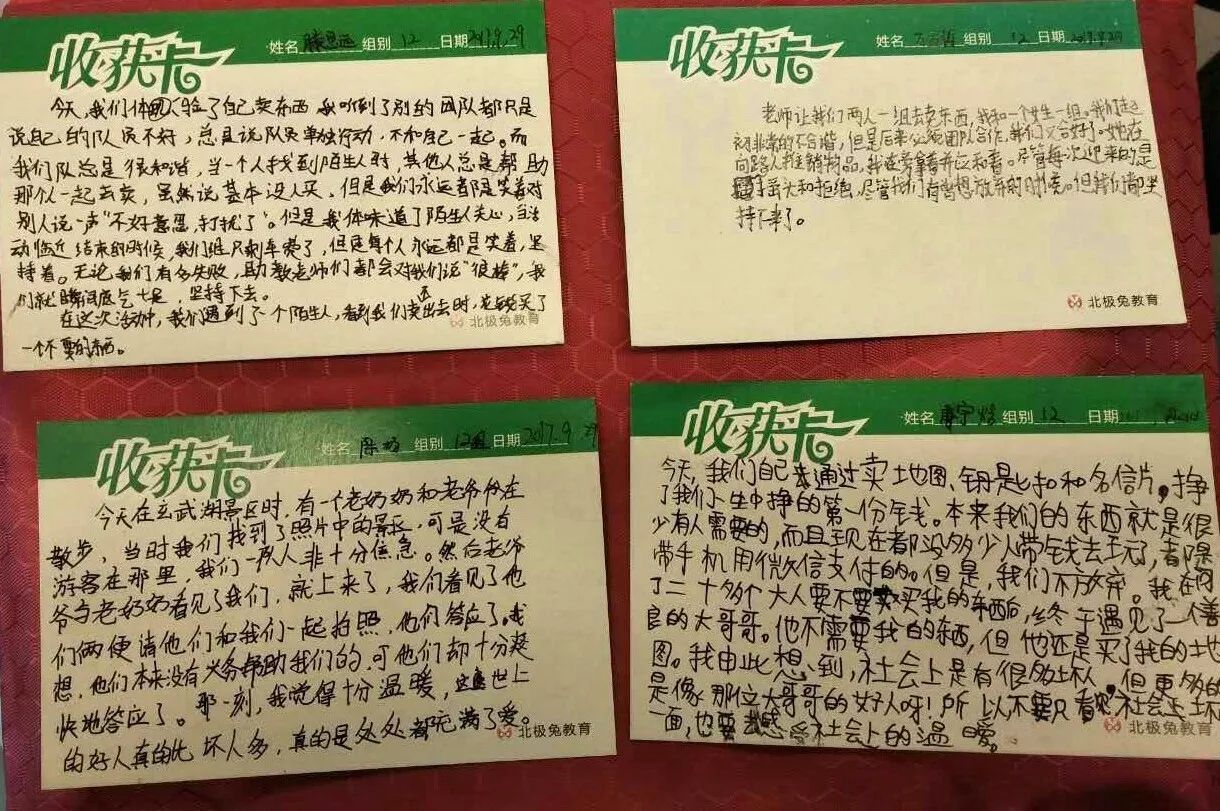 收获卡
姓名 滕思远 组别 12 日期 2017.9.29
今天,我们体验了自己卖东西 我听到了别的团队都只是
说自己的队员不好,总是说队员单独行动,不和自己一起。而
我们队总是很和谐,当一个人找到陌生人时,其他人总是帮助
那个一起去卖,虽然说基本没人买,但是我们永远都是笑着对
别人说一声“不好意思,打扰了”。但是我体味道了陌生人关心,当活
动临近结束的时候,我们虽只剩车费了,但是每个人永远都是笑着,坚
持着。无论我们有多失败,助教老师们都会对我们说“很棒”,我
们就瞬间底气十足,坚持下去。
在这次活动中,我们遇到了一个陌生人,看到我们卖不出去时,花钱买了
一个不要的东西。
北极兔教育
收获卡
姓名 组别 12 日期 2017.9.29
老师让我们两人一组去卖东西,我和一个女生一组。我们起
初非常的不合谐,但是后来必须团队合作,我们又合好了。她在
向路人推销物品,我在旁拿着并应和着。尽管每次迎来的是
摇头和拒绝,尽管我们有曾想放弃的时候。但我们都坚
持下来了。
北极兔教育
收获卡
姓名 陈 组别 12组 日期 2017.9 29
今天在玄武湖景区时,有一个老奶奶和老爷爷在
散步,当时我们找到了照片中的景区,可是没有
游客在那里,我们一队人非十分着急。然后老爷
爷与老奶奶看见了我们,就上来了,我们看见了他
们俩便请他们和我们一起拍照,他们答应了。我
想,他们本来没有义务帮助我们的,可他们却十分爽
快地答应了。那一刻,我觉得十分温暖,这世上
的好人真的比坏人多,真的是处处都充满了爱。
北极兔教育
收获卡
姓名 宁 组别 12 日期
今天,我们自己去通过卖地图、钥匙扣和名信片,挣
了我们人生中挣的第一份钱。本来我们的东西就是很
少有人需要的,而且现在都没多少人带钱去玩了,都是
带手机用微信支付的。但是,我们不放弃。我在问
了二十多个大人要不要买我的东西后,终于遇见了一个善
良的大哥哥。他不需要我的东西,但他还是买了我的地
图。我由此想到,社会上是有很多坏人,但更多的
是像那位大哥哥的好人呀!所以不要只看见社会上坏
一面,也要去感受社会上的温暖。
北极兔教育